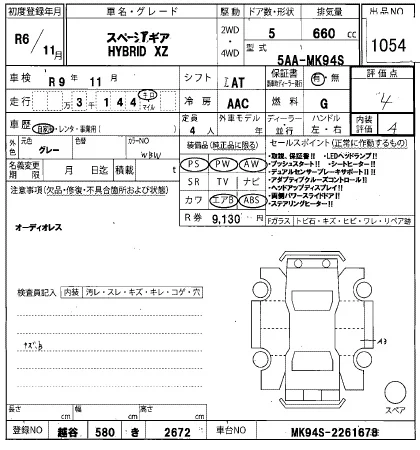 初度登録年月 車名・グレード 駆動 ドア数・形状 排気量 出品NO
R6/11月 スペーシアギア HYBRID XZ 2WD・4WD 5 660cc 1054
型式 5AA-MK94S
車検 R9年11月 シフト IAT 保証書 有・無 評価点
走行 万3千144 キロ マイル 冷房 AAC 燃料 G 4
車歴 自家用・レンタ・事業用( ) 定員 4人 外車モデル 年 ディーラー・並行 ハンドル 左・右 内装評価 A
外色 元色 グレー 色替 カラーNO WBW
名義変更期限 月 日迄 積載 t
装備品(純正品に限る) セールスポイント(正常に作動するもの)
PS PW AW
SR TV ナビ
カワ エアB ABS
R券 9,130円
・取扱、保証書!! ・LEDヘッドランプ!!
・プッシュスタート!! ・シートヒーター!!
・デュアルセンサーブレーキサポートⅡ!!
・アダプティブクルーズコントロール!!
・ヘッドアップディスプレイ!!
・両側パワースライドドア!!
・ステアリングヒーター!!
Fガラス トビ石・キズ・ヒビ・ワレ・リペア跡
注意事項(欠品・修復・不具合箇所および状態)
オーディオレス
検査員記入 内装 汚レ・スレ・キズ・キレ・コゲ・穴
キズ
A3
スペア
長さ cm 幅 cm 高さ cm
登録NO 越谷 580 き 2672 車台NO MK94S-2261678